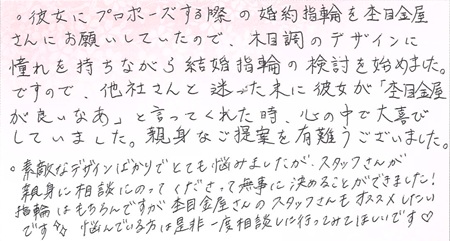 。彼女にプロポーズする際の婚約指輪を杢目金屋
さんにお願いしていたので、木目調のデザインに
憧れを持ちながら結婚指輪の検討を始めました。
ですので、他社さんと迷った末に彼女が「杢目金屋
が良いなあ」と言ってくれた時、心の中で大喜び
していました。親身なご提案を有難うございました。
。素敵なデザインばかりでとても悩みましたが、スタッフさんが
親身に相談にのってくださって無事に決めることができました!
指輪はもちろんですが杢目金屋さんのスタッフさんもオススメしたい
です✨ 悩んでいる方は是非一度相談しに行ってみてほしいです♡